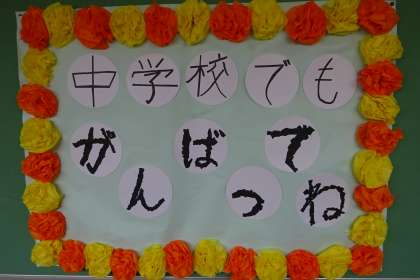 中学校でも
がんばってね